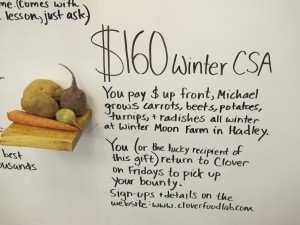 me. (Comes with
lesson, just ask)
$160 Winter CSA
You pay $ up front, Michael
grows carrots, beets, potatoes,
turnips, + radishes all winter
at Winter Moon Farm in Hadley.
You (or the lucky recipient of
this gift) return to Clover
on Fridays to pick up
your bounty.
Sign-ups + details on the
website: www.cloverfoodlab.com
best
ousands